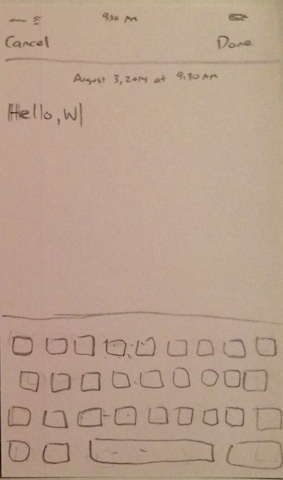 9:30 AM
Cancel Done
August 3, 2014 at 9:30 AM
Hello, W